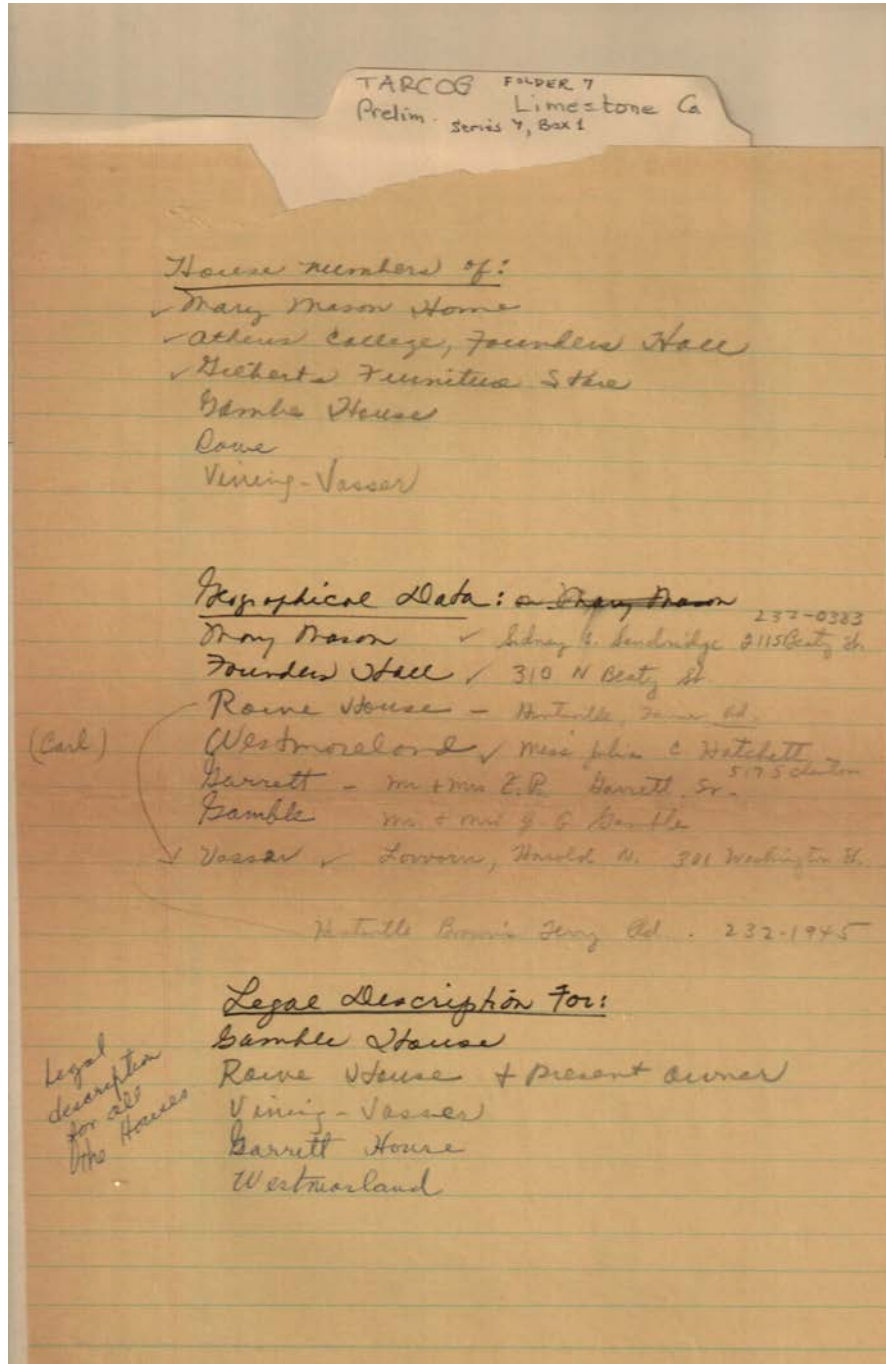 TARCOG FOLDER 7
Prelim. Limestone Co
Series 4, Box 1
House numbers of:
✓ Mary Mason Home
✓ Athens College, Founders Hall
✓ Gilberts Furniture Store
Gamble House
Rowe
Vining-Vasser
Geographical Data: Mary Mason
232-0383
Mary Mason ✓ Sidney E. Sandridge Beaty St.
Founders Hall ✓ 310 N Beaty St
Rowe House - Huntsville, Rd.
(Carl)
Westmoreland ✓ Miss Julia C Hatchett
Garrett - Mr + Mrs E.P. Garrett Sr. Clinton
Gamble Mr + Mrs Gamble
Vasser ✓ Lovvorn, Harold N. 301 Washington St.
Huntsville Browns Ferry Rd. 232-1945
Legal Description For:
Gamble House
Rowe House + present owner
Vining-Vasser
Garrett House
Westmorland
Legal
description
for all
the Houses